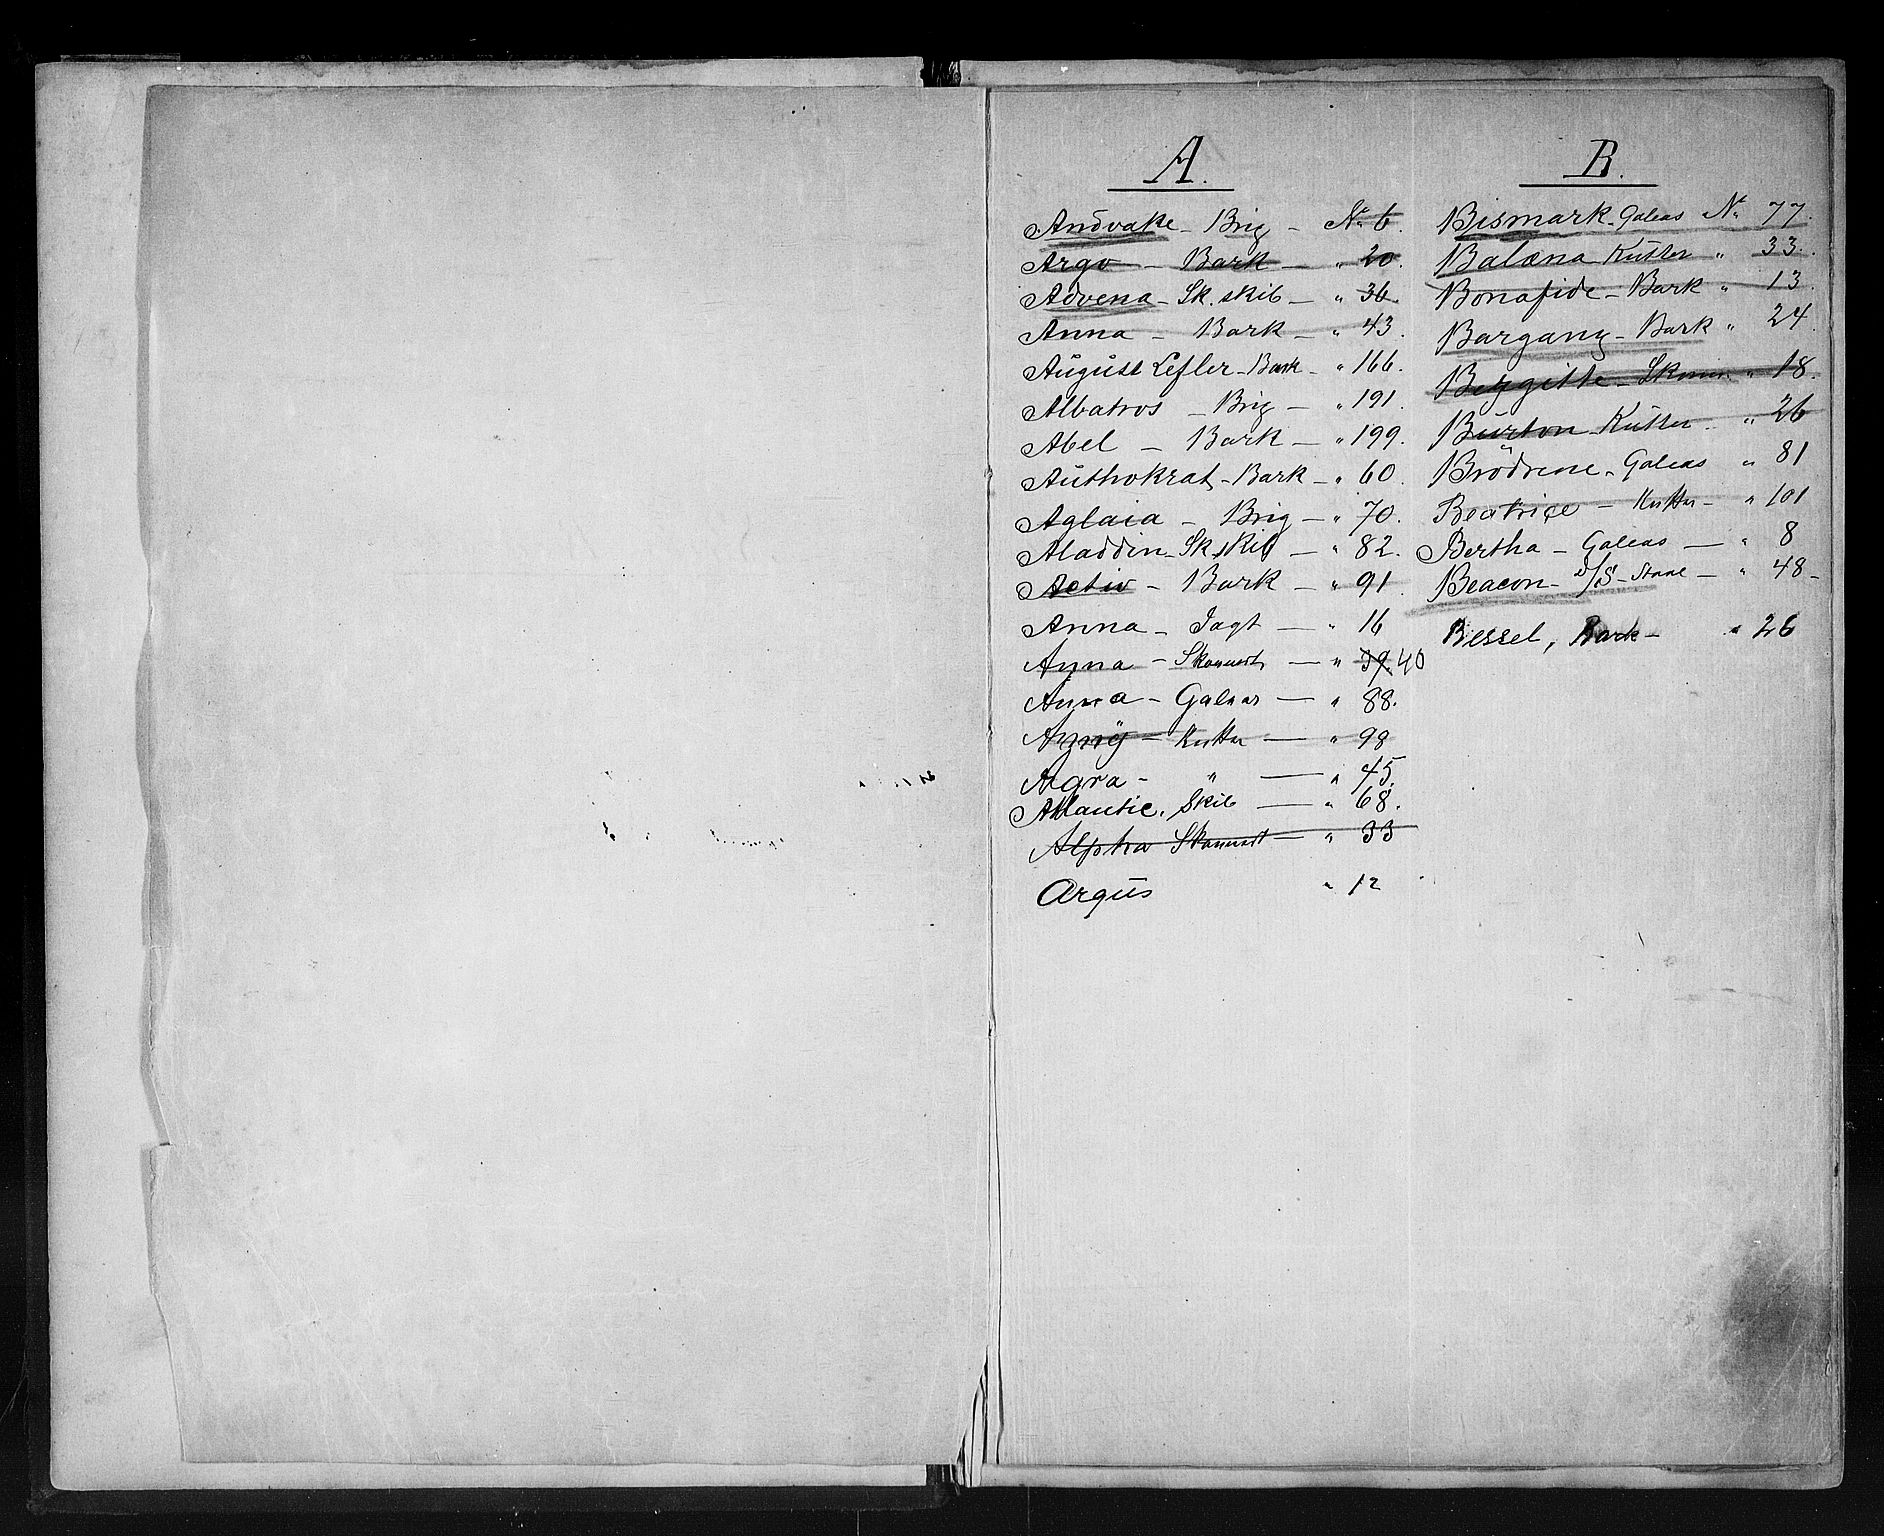 A.
Andvake - Brig - No 6.
Argo - Bark - " 20.
Advena - Sk. skib - " 36.
Anna - Bark - " 43.
August Lefler - Bark - " 166.
Albatros - Brig - " 191.
Abel - Bark - " 199.
Authokrat - Bark - " 60.
Aglaia - Brig - " 70.
Aladdin - Sk. skib - " 82.
Activ - Bark - " 91.
Anna - Jagt - " 16
Anna - Skonnert - " 39. 40
Anna - Galeas - " 88.
Kutter - " 98
Agra - " - " 45.
Atlantic. Skib - " 68.
Alpha Skonnert - " 33
Argus " 12
B.
Bismark - Galeas No 77.
Balæna Kutter " 33.
Bonafide - Bark " 13.
Bargang - Bark " 24.
Birgitte - Skonn. " 18.
Burton - Kutter " 26
Brödrene - Galeas " 81
Beatrice - Kutter - " 101
Bertha - Galeas - " 8
Beacon - D/S - Staal - " 48 -
Bessel, Bark - " 26